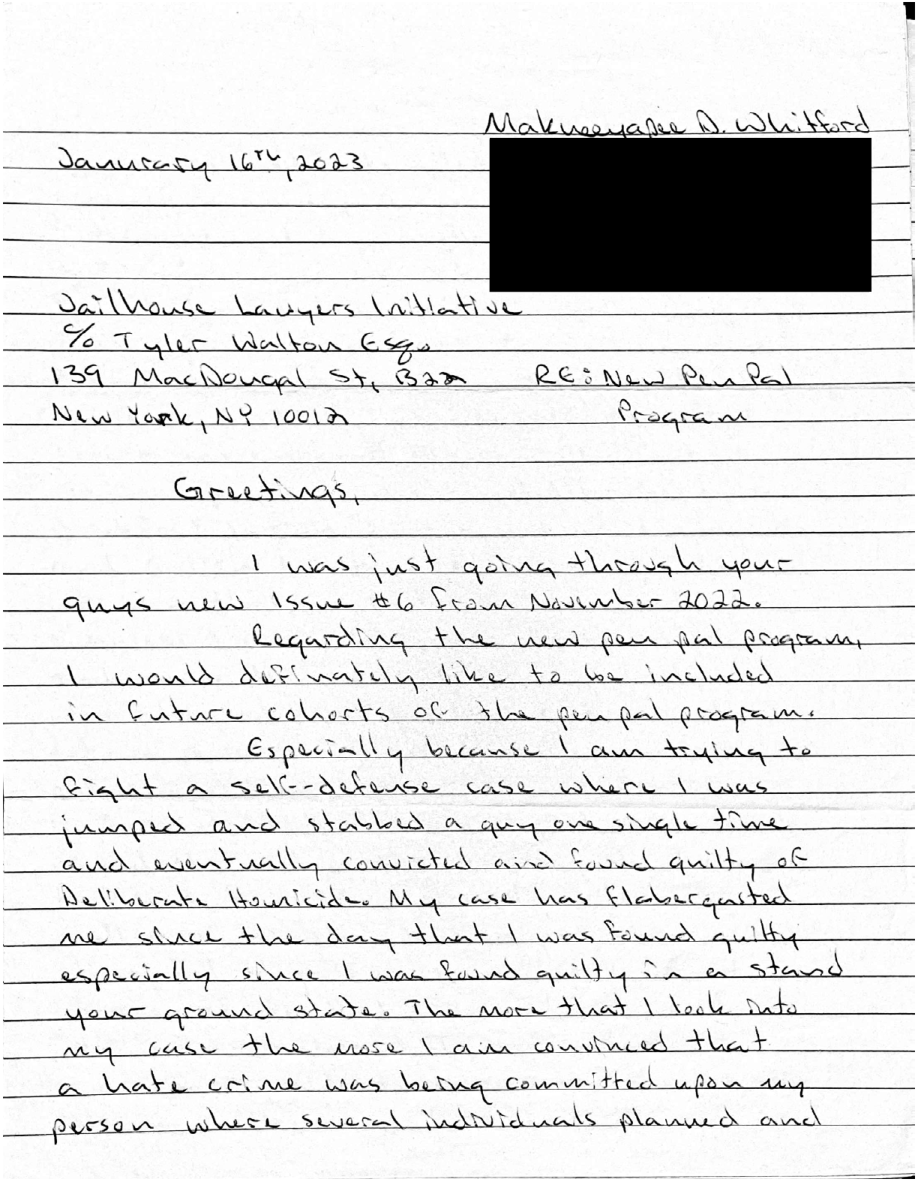 Makueeyapee D. Whitford
Janurary 16TH, 2023
Jailhouse Lawyers Initiative
c/o Tyler Walton Esq.
139 MacDougal St, B22
RE: New Pen Pal
New York, NY 10012
Program
Greetings,
I was just going through your
guys new Issue #6 from November 2022.
Regarding the new pen pal program,
I would definately like to be included
in future cohorts of the pen pal program.
Especially because I am trying to
fight a self-defense case where I was
jumped and stabbed a guy one single time
and eventually convicted and found guilty of
Deliberate Homicide. My case has flabergasted
me since the day that I was found guilty
especially since I was found guilty in a stand
your ground state. The more that I look into
my case the more I am convinced that
a hate crime was being committed upon my
person where several individuals planned and